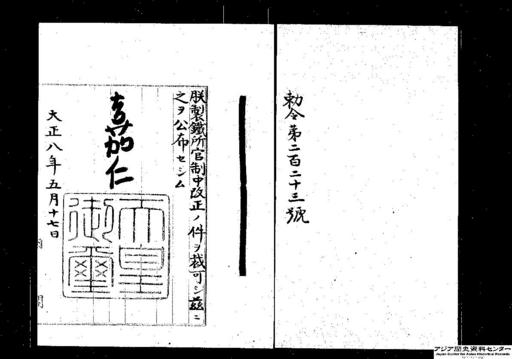 勅令第二百二十三號
朕製鐵所官制中改正ノ件ヲ裁可シ茲ニ
之ヲ公布セシム
嘉仁
天皇御璽
大正八年五月十七日
アジア歴史資料センター
Japan Center for Asian Historical Records